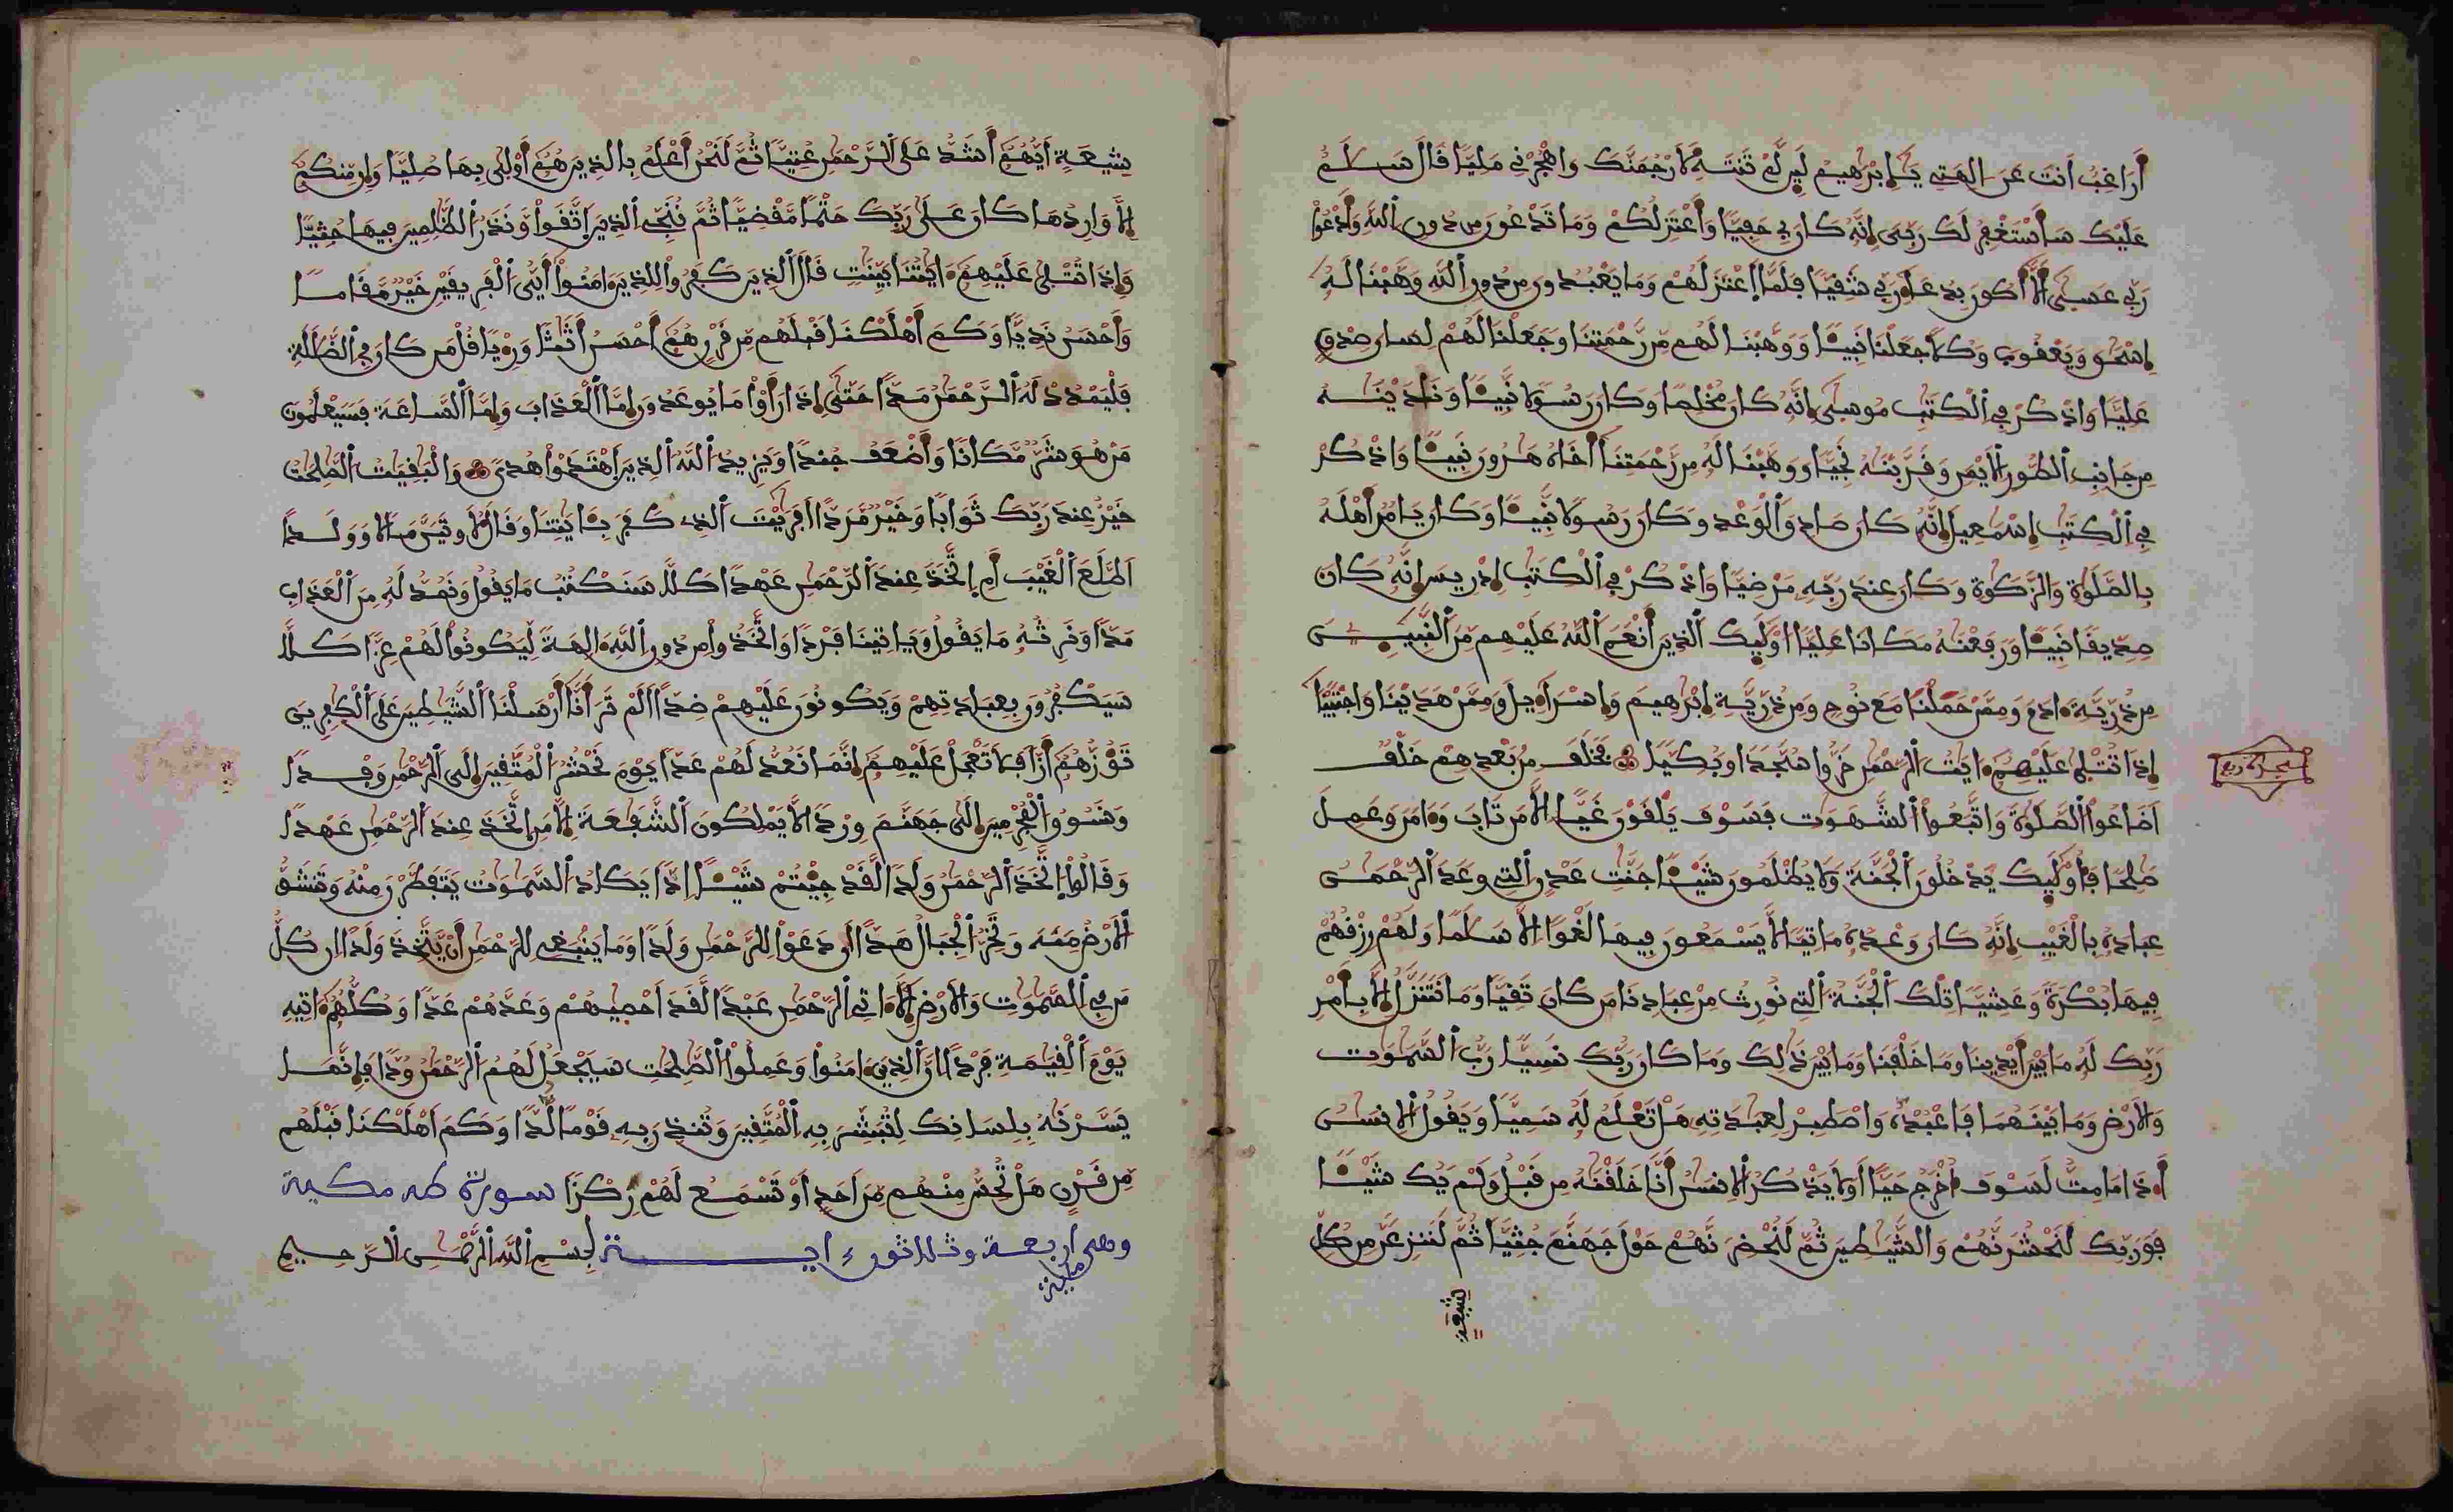 أراغب أنت عن الهتي يإبرهيم لين لم تنته لأرجمنك واهجرني مليا قال سلم
عليك سأستغفر لك ربي إنه كان بي حفيا وأعتزلكم وما تدعون من دون الله وأدعوا
ربي عسى ألا أكون بدعاء ربي شقيا فلما إعتزلهم وما يعبدون من دون الله وهبنا له
إسحق ويعقوب وكلا جعلنا نبيئا ووهبنا لهم من رحمتنا وجعلنا لهم لسان صدق
عليا واذكر في الكتب موسى إنه كان مخلصا وكان رسولا نبيئا وندينه
من جانب الطور الأيمن وقربنه نجيا ووهبنا له من رحمتنا أخاه هرون نبيئا واذكر
في الكتب إسمعيل إنه كان صادق الوعد وكان رسولا نبيئا وكان يامر أهله
بالصلوة والزكوة وكان عند ربه مرضيا واذكر في الكتب إدريس إنه كان
صديقا نبيئا ورفعنه مكانا عليا اوليك الذين أنعم الله عليهم من النبيين
من ذرية ءادم وممن حملنا مع نوح ومن ذرية إبرهيم وإسراءيل وممن هدينا واجتبينا
إذا تتلى عليهم ءايت الرحمن خروا سجدا وبكيا فخلف من بعدهم خلف
سجدة
اضاعوا الصلوة واتبعوا الشهوت فسوف يلقون غيا إلا من تاب وءامن وعمل
صلحا فأوليك يدخلون الجنة ولا يظلمون شيئا جنت عدن التي وعد الرحمن
عباده بالغيب إنه كان وعده ماتيا لا يسمعون فيها لغوا إلا سلما ولهم رزقهم
فيها بكرة وعشيا تلك الجنة التي نورث من عبادنا من كان تقيا وما نتنزل إلا بأمر
ربك له ما بين أيدينا وما خلفنا وما بين ذلك وما كان ربك نسيا رب السموت
والأرض وما بينهما فاعبده واصطبر لعبدته هل تعلم له سميا ويقول الانسن
أءذا ما مت لسوف أخرج حيا أولا يذكر الانسن أنا خلقنه من قبل ولم يك شيئا
فوربك لنحشرنهم والشيطين ثم لنحضرنهم حول جهنم جثيا ثم لننزعن من كل
شيعة
شيعة ايهم أشد على الرحمن عتيا ثم لنحن أعلم بالذين هم أولى بها صليا وإن منكم
إلا واردها كان على ربك حتما مقضيا ثم ننجي الذين إتقوا ونذر الظلمين فيها جثيا
وإذا تتلى عليهم ءايتنا بينت قال الذين كفروا للذين ءامنوا أي الفريقين خير مقاما
وأحسن نديا وكم أهلكنا قبلهم من قرن هم أحسن أثثا ورءيا قل من كان في الضللة
فليمدد له الرحمن مدا حتى إذا رأوا ما يوعدون إما العذاب وإما الساعة فسيعلمون
من هو شر مكانا وأضعف جندا ويزيد الله الذين اهتدوا هدى والبقيت الصلحت
خير عند ربك ثوابا وخير مردا افريت الذي كفر بءايتنا وقال لأوتين مالا وولدا
اطلع الغيب أم إتخذ عند الرحمن عهدا كلا سنكتب ما يقول ونمد له من العذاب
مدا ونرثه ما يقول وياتينا فردا واتخذوا من دون الله ءالهة ليكونوا لهم عزا كلا
سيكفرون بعبادتهم ويكونون عليهم ضدا الم تر أنا أرسلنا الشيطين على الكفرين
تؤزهم أزا فلا تعجل عليهم إنما نعد لهم عدا يوم نحشر المتقين إلى الرحمن وفدا
ونسوق المجرمين إلى جهنم وردا لا يملكون الشفعة إلا من إتخذ عند الرحمن عهدا
وقالوا إتخذ الرحمن ولدا لقد جيتم شيئا إدا يكاد السموت يتفطرن منه وتنشق
الأرض منه وتخر الجبال هدا ان دعوا للرحمن ولدا وما ينبغي للرحمن أن يتخذ ولدا إن كل
من في السموت والأرض إلا ءاتي الرحمن عبدا لقد احصيهم وعدهم عدا وكلهم ءاتيه
يوم القيمة فردا إن الذين ءامنوا وعملوا الصلحت سيجعل لهم الرحمن ودا فإنما
يسرنه بلسانك لتبشر به المتقين وتنذر به قوما لدا وكم اهلكنا قبلهم
من قرن هل تحس منهم من احد او تسمع لهم ركزا سورة طه مكية
وهي اربعة وثلاثون ءاية بسم الله الرحمن الرحيم
ماية